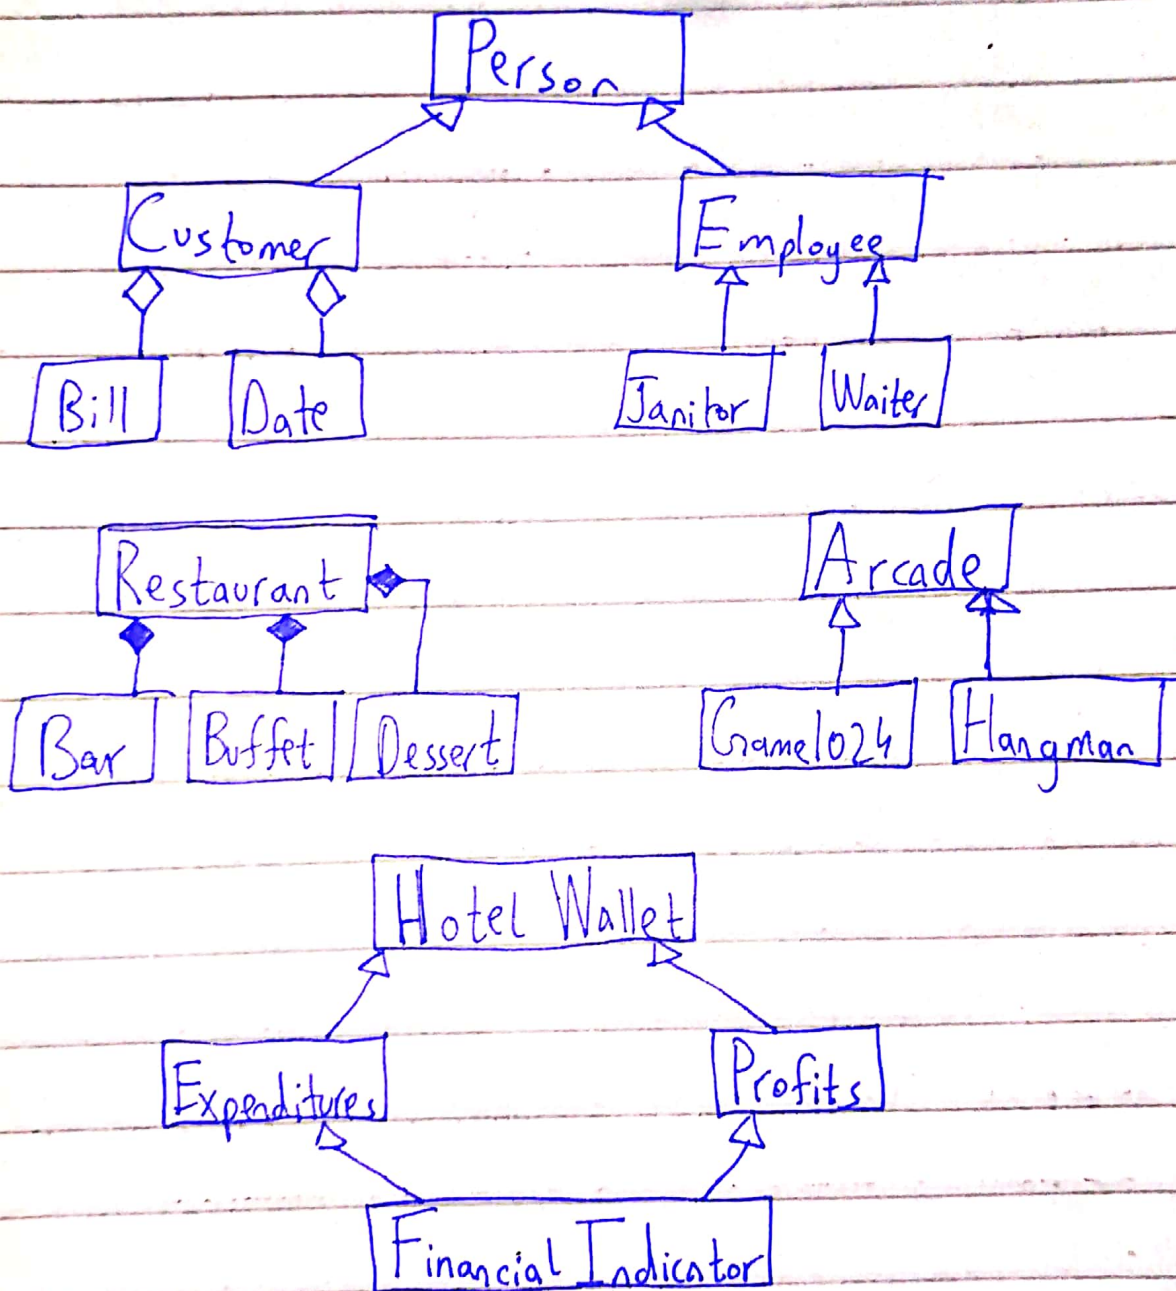 Person
Customer
Employee
Bill
Date
Janitor
Waiter
Restaurant
Arcade
Bar
Buffet
Dessert
Game1024
Hangman
Hotel Wallet
Expenditures
Profits
Financial Indicator